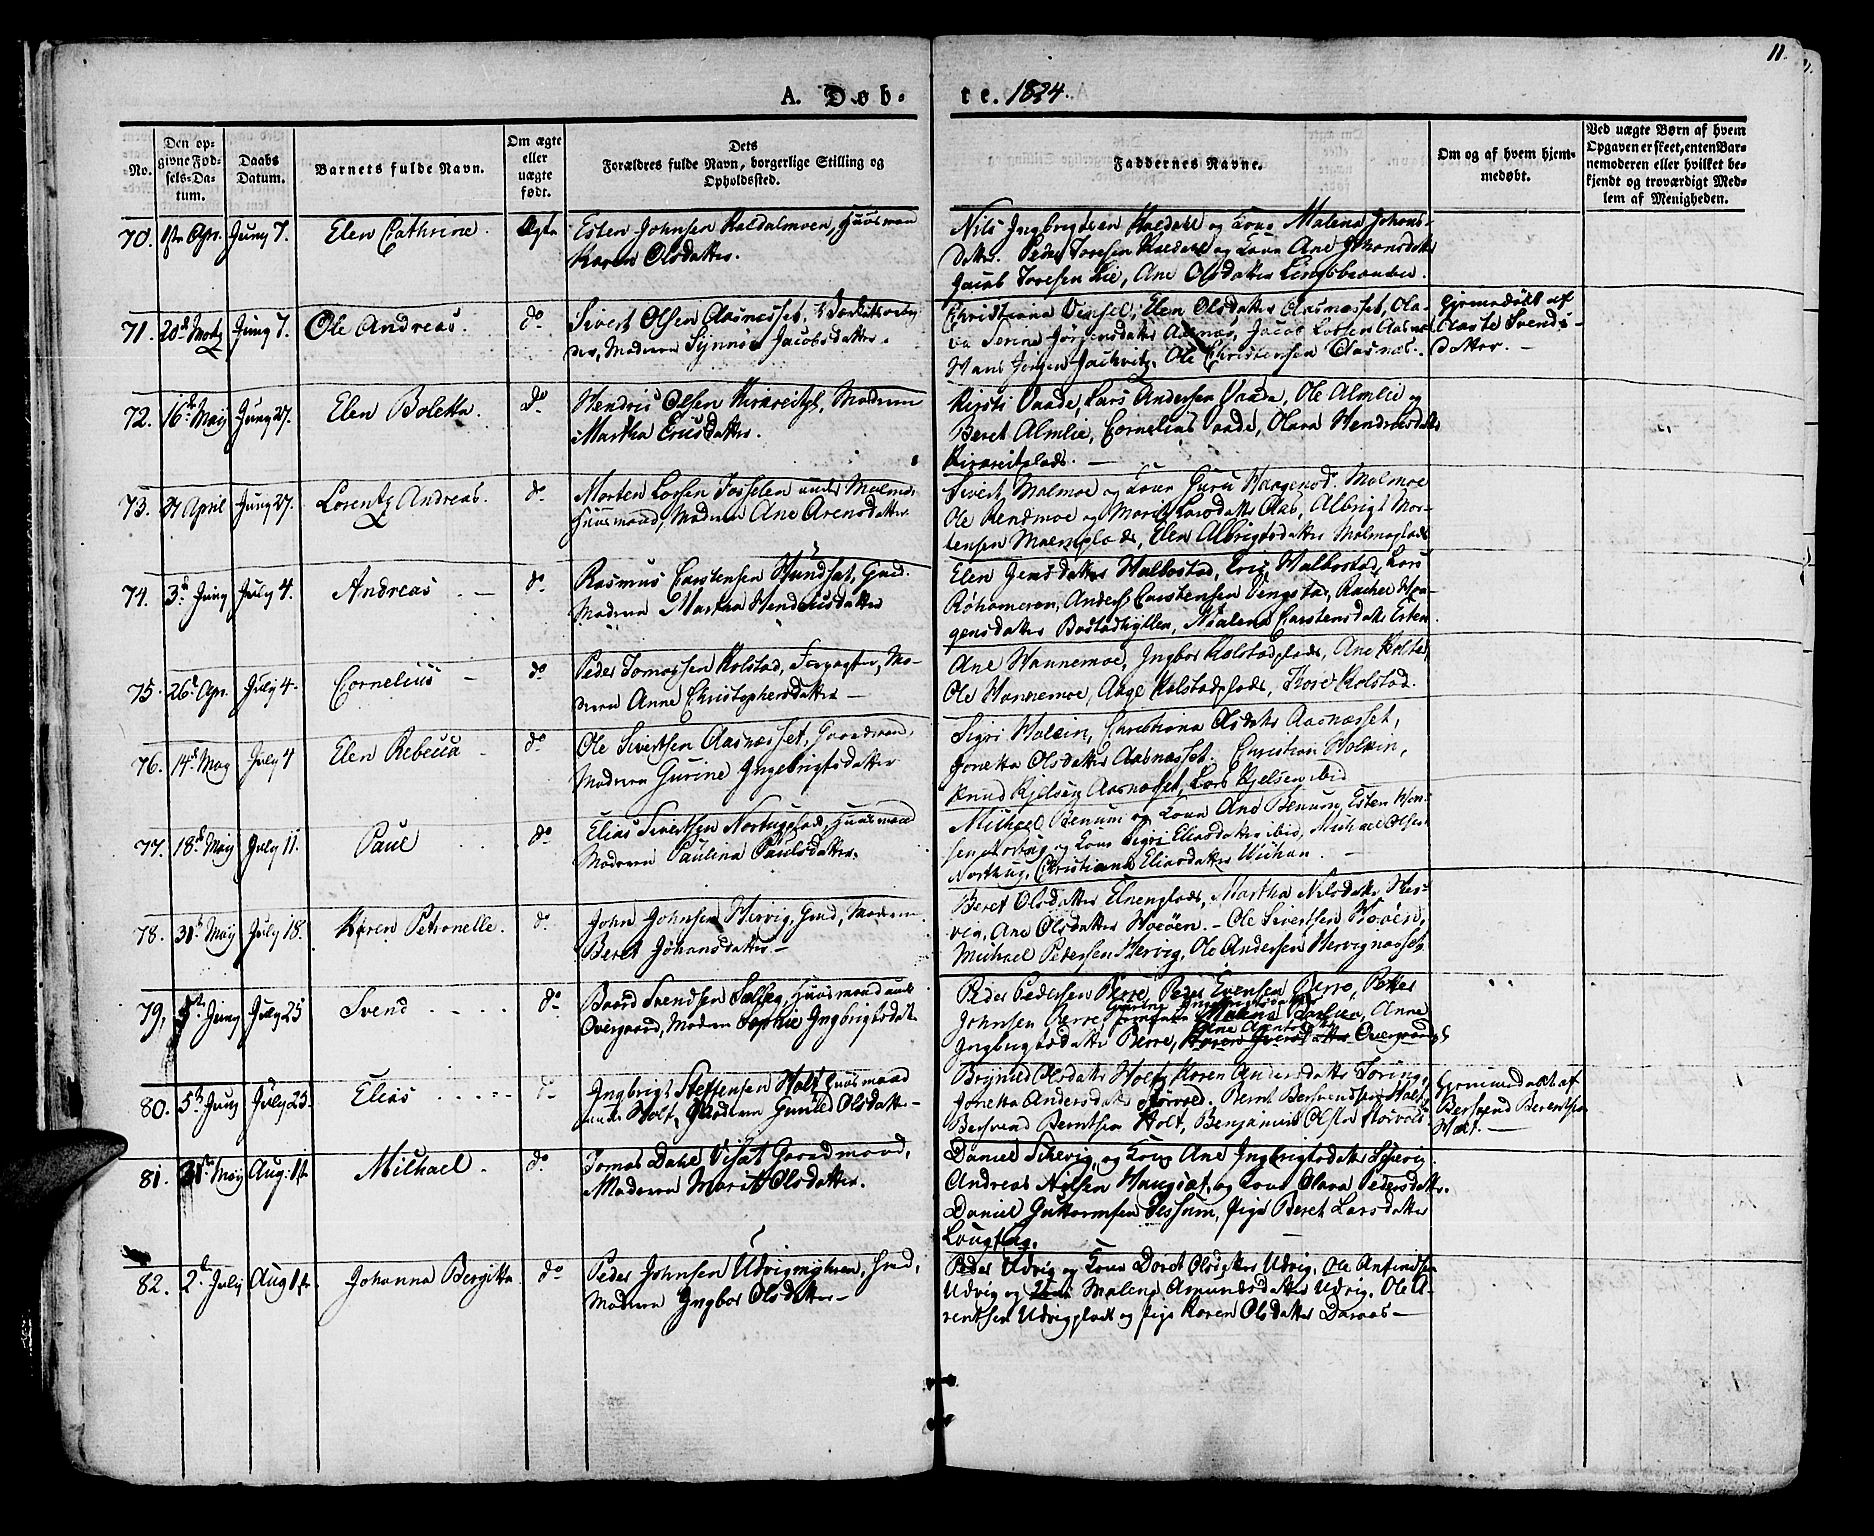 11.
A. Døb-
te. 1824.
No.
Den op-
givne Fød-
sels-Da-
tum.
Daabs
Datum.
Barnets fulde Navn.
Om ægte
eller
uægte
født.
Dets
Forældres fulde Navn, borgerlige Stilling og
Opholdssted.
Faddernes Navne.
Om og af hvem hjem-
medøbt.
Ved uægte Børn af hvem
Opgaven er skeet, enten Bar-
nemoderen eller hvilket be-
kjendt og troværdigt Med-
lem af Menigheden.
70. 1ste Apr. Juny 7. Elen Cathrine. Ægte
Esten Johnsen Kaldalmoen, Huusmand
Karen Olsdatter.
Nils Ingbrigtsen Kaldahl og Kone Malena Johans-
datter. Peder Toresen Kaldahl og Kone Ane Jonsdatter
Jacob Toresen Lie, Ane Olsdatter
71. 20de Juny 7. Ole Andreas. do
Sivert Olsen Aasnesset,
Moderen Synnøv Jacobsdatter.
Christiana Vinsel, Elen Olsdatter Aasnæsset, Ola-
va Serine Jørgensdatter Aasnæs, Jacob Larsen Aasnæs
Hans Jørgen Ole Christensen Aasnæs.
Hjemmedøbt af
Aaste Svends-
datter. -
72. 16de May Juny 27. Elen Boletta. do
Hendric Olsen Moderen
Martha Ericsdatter.
Kirsti Vaade, Lars Andersen Vaade, Ole Almlie og
Beret Almlie, Cornelius Vaade, Olava Hendricsdatter
73. 27 April Juny 27. Lorentz Andreas. do
Morten Larsen under Malmo,
Huusmand, Moderen Ane Arensdatter
Sivert Malmoe og Kone Guru Haagensd. Malmoe
Ole Rendmoe og Marit Larsdatter Aas, Albrigt Mor-
tensen Elen Albrigtsdatter Malmoplads
74. 3de Juny July 4. Andreas. - do
Rasmus Carstensen Hundsat, Grd.
Moderen Martha Hendricsdatter
Elen Jensdatter Halbostad, Eric Halbostad, Lars
Anders Carstensen Tingstad, Rachel Haa-
gensdatter Bostadhyllen, Malena Carstensdatter Esten
75. 26de Apr. July 4. Cornelius - do
Peder Tomassen Kolstad, Forpagter, Mo-
deren Anne Christophersdatter -
Ane Hannemoe, Ingbor Kolstadplads, Ane Kolstad
Ole Hannemoe, Aage Kolstadplads, Tore Kolstad.
76. 14de May July 4 Elen Rebecca - do
Ole Sivertsen Aasnæsset, Gaardmand,
Moderen Gurine Ingebrigtsdatter
Sigri Holvin, Christiana Olsdatter Aasnæsset,
Jonetta Olsdatter Aasnæsset. Christian Holvin,
Knud Kjelsen Aasnæsset, Lars Kjelsen ibid
77. 18de May July 11. Paul do
Elias Sivertsen Nortugplads, Huusmand
Moderen Paulina Paulsdatter.
Michael Benum og Kone Ane Benum, Esten Han-
sen Nortug og Kone Sigri Eliasdatter ibid, Michael Olsen
Nortug, Christianna Eliasdatter Wichan. -
78. 31te May July 18. Karen Petronelle. do
John Johnsen Hervig, Grd, Moderen
Beret Johansdatter -
Beret Olsdatter Elnenplads, Martha Nilsdatter Her-
vig, Ane Olsdatter Hoeøen. - Ole Sivertsen Hoøen,
Michael Petersen Hervig, Ole Andersen Hervignæsset
79, 5te Juny July 25 Svend do
Baard Svendsen Salthg, Huusmand under
Overgaard, Moderen Sophie Ingbrigtsdat.
Peder Pedersen Berre, Peder Evensen Berre, Petter
Johnsen Berre, Malena Anne
Ingbrigtsdatter Berre, Overgaard
80. 5te Juny July 25. Elias do
Ingbrigt Steffensen Holt, Huusmand
under Holt, Moderen Gunild Olsdatter -
Brynild Olsdatter Holt, Karen Andersdatter Toring,
Jonetta Andersdatter Storvold. Bernt Bersvendsen Holt,
Bersvend Berntsen Holt, Benjamin Olsen Storvold
Hjemmedøbt af
Bersvend Berentsen
Holt. -
81. 31te May Aug. 1st. Michael. do
Tomas Dahl Visat Gaardmand,
Moderen Marit Olsdatter.
Daniel Schevig, og Kone Ane Ingbrigtsdatter Schevig.
Andreas Nilsen Haugsat, og Kone Olava Pedersdatter.
Daniel Guttormsen Tessum, Pige Beret Larsdatter
82. 2de July Aug 1st. Johanna Bergitta. do
Peder Johnsen Udvigmyhren, Grd,
Moderen Ingbor Olsdatter -
Peder Udvig og Kone Doret Olsdatter Udvig, Ole Anfindsen
Udvig og Malena Amundsdatter Udvig. Ole A-
rentsen Udvigplads og Pige Karen Olsdatter Daraas -